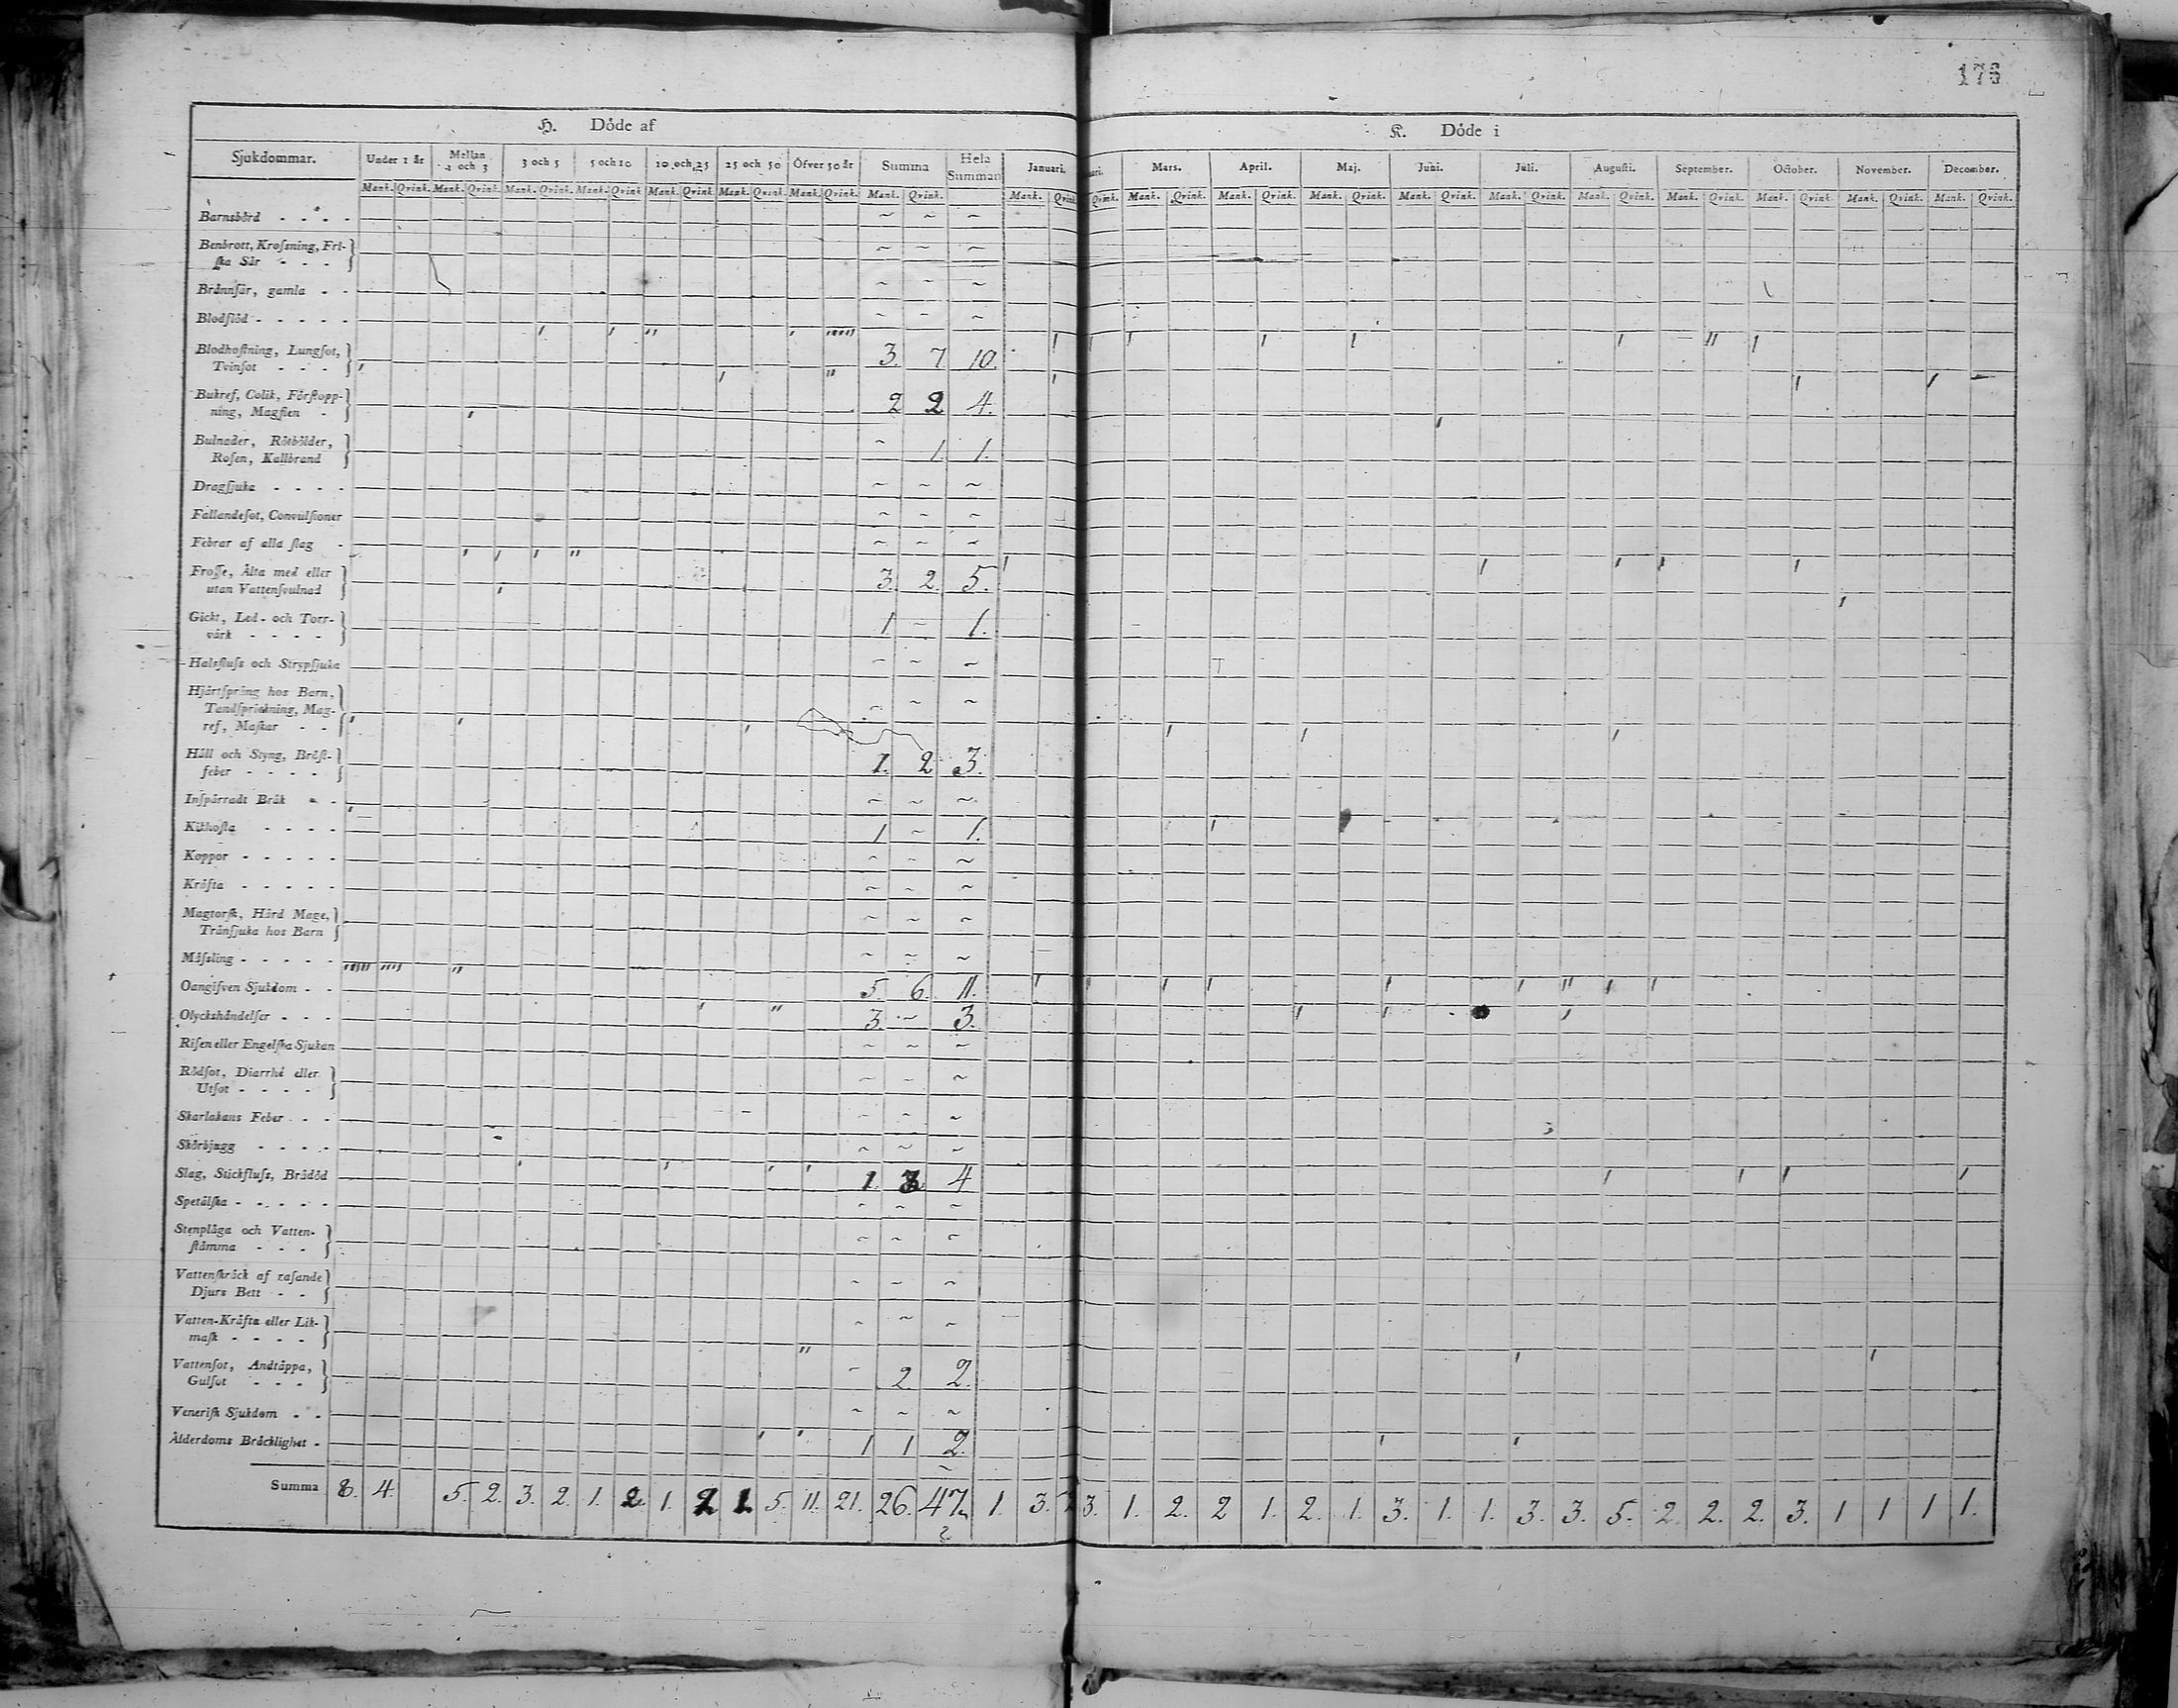 176
H. Döde af
K. Döde i
Sjukdommar. Under 1 år Mellan 1 och 3 3 och 5 5 och 10 10 och 25 25 och 50 Öfver 50 år Summa Hela Summan Januari. Mars. April. Maj. Juni. Juli. Augusti. September. October. November. December.
Mank. Qvink. Mank. Qvink. Mank. Qvink. Mank. Qvink. Mank. Qvink. Mank. Qvink. Mank. Qvink. Mank. Qvink. Mank. Qvink. Qvink. Mank. Qvink. Mank. Qvink. Mank. Qvink. Mank. Qvink. Mank. Qvink. Mank. Qvink. Mank. Qvink. Mank. Qvink. Mank. Qvink. Mank. Qvink.
Barnsbörd - - - - ~ ~ ~
Benbrott, Krosſning, Fri-
ſka Sår - - - ~ ~ ~
Brännſår, gamla - - ~ ~ ~
Blodflöd - - - - - ~ ~ ~
Blodhoſtning, Lungſot,
Tvinſot - - - 3. 7 10.
Bukref, Colik, Förſtopp-
ning, Magſien - 2 2 4.
Bulnader, Rötbölder,
Roſen, Kallbrand ~ 1. 1.
Dragſjuka - - - - ~ ~ ~
Fallandeſot, Convulſioner ~ ~ ~
Febrar af alla ſlag - ~ ~ ~
Froſſe, Älta med eller
utan Vattenſvulnad 3. 2. 5.
Gickt, Led- och Torr-
värk - - - - 1 ~ 1.
Halsfluſs och Strypſjuka ~ ~ ~
Hjärtſpräng hos Barn,
Tandſprickning, Mag-
ref, Maſkar - - ~ ~ ~
Håll och Styng, Bröſt-
feber - - - - 1. 2 3.
Inſpärradt Bråk - - ~ ~ ~
Kikhoſta - - - - 1 ~ 1.
Koppor - - - - - ~ ~ ~
Kräfta - - - - - ~ ~ ~
Magtorſk, Hård Mage,
Tränſjuka hos Barn ~ ~ ~
Mäſsling - - - - - ~ ~ ~
Oangifven Sjukdom - - 5. 6. 11.
Olyckshändelſer - - - 3. ~ 3.
Riſen eller Engelſka Sjukan ~ ~ ~
Rödſot, Diarrhé eller
Utſot - - - - ~ ~ ~
Skarlakans Feber - - - ~ ~ ~
Skörbjugg - - - - ~ ~ ~
Slag, Stickfluſs, Brådöd 1. 3 4
Spetälſka - - - - - ~ ~ ~
Stenplåga och Vatten-
ſtämma - - - ~ ~ ~
Vattenſkräck af raſande
Djurs Bett - - ~ ~ ~
Vatten-Kräfta eller Lik-
maſk - - - - ~ ~ ~
Vattenſot, Andtäppa,
Gulſot - - - ~ 2. 2.
Veneriſk Sjukdom - - ~ ~ ~
Ålderdoms Bräcklighet - 1 1 2.
Summa 8. 4. 5. 2. 3. 2. 1. 2. 1. 2 1. 5. 11. 21. 26. 47. 1. 3. 3. 1. 2. 2 1. 2. 1. 3. 1. 1. 3. 3. 5. 2. 2. 2. 3. 1 1 1 1.